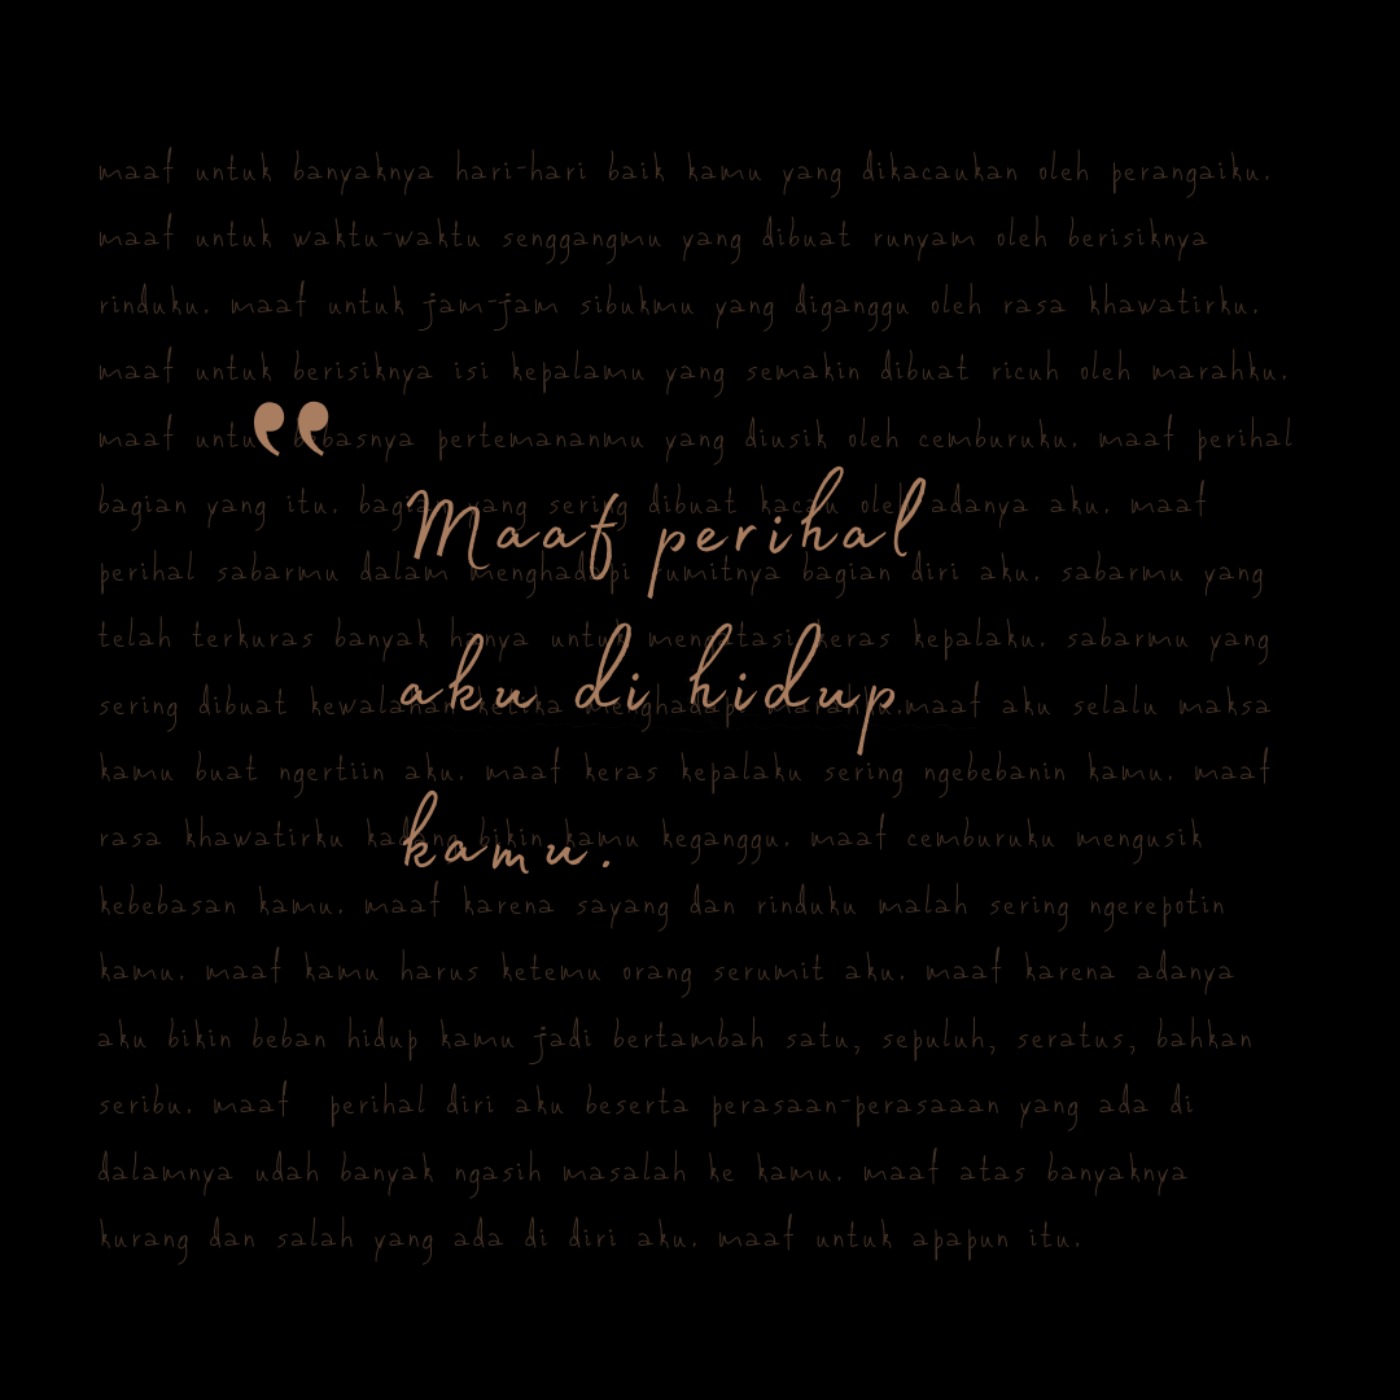 maaf untuk banyaknya hari-hari baik kamu yang dikacaukan oleh perangaiku.
maaf untuk waktu-waktu senggangmu yang dibuat runyam oleh berisiknya
rinduku. maaf untuk jam-jam sibukmu yang diganggu oleh rasa khawatirku.
maaf untuk berisiknya isi kepalamu yang semakin dibuat ricuh oleh marahku.
maaf untuk bebasnya pertemananmu yang diusik oleh cemburuku. maaf perihal
bagian yang itu. bagian yang sering dibuat kacau oleh adanya aku. maaf
perihal sabarmu dalam menghadapi rumitnya bagian diri aku. sabarmu yang
telah terkuras banyak hanya untuk mengatasi keras kepalaku. sabarmu yang
sering dibuat kewalahan ketika menghadapi marahku.maaf aku selalu maksa
kamu buat ngertiin aku. maaf keras kepalaku sering ngebebanin kamu. maaf
rasa khawatirku kadang bikin kamu keganggu. maaf cemburuku mengusik
kebebasan kamu. maaf karena sayang dan rinduku malah sering ngerepotin
kamu. maaf kamu harus ketemu orang serumit aku. maaf karena adanya
aku bikin beban hidup kamu jadi bertambah satu, sepuluh, seratus, bahkan
seribu. maaf perihal diri aku beserta perasaan-perasaaan yang ada di
dalamnya udah banyak ngasih masalah ke kamu. maaf atas banyaknya
kurang dan salah yang ada di diri aku. maaf untuk apapun itu.
❞
Maaf perihal
aku di hidup
kamu.